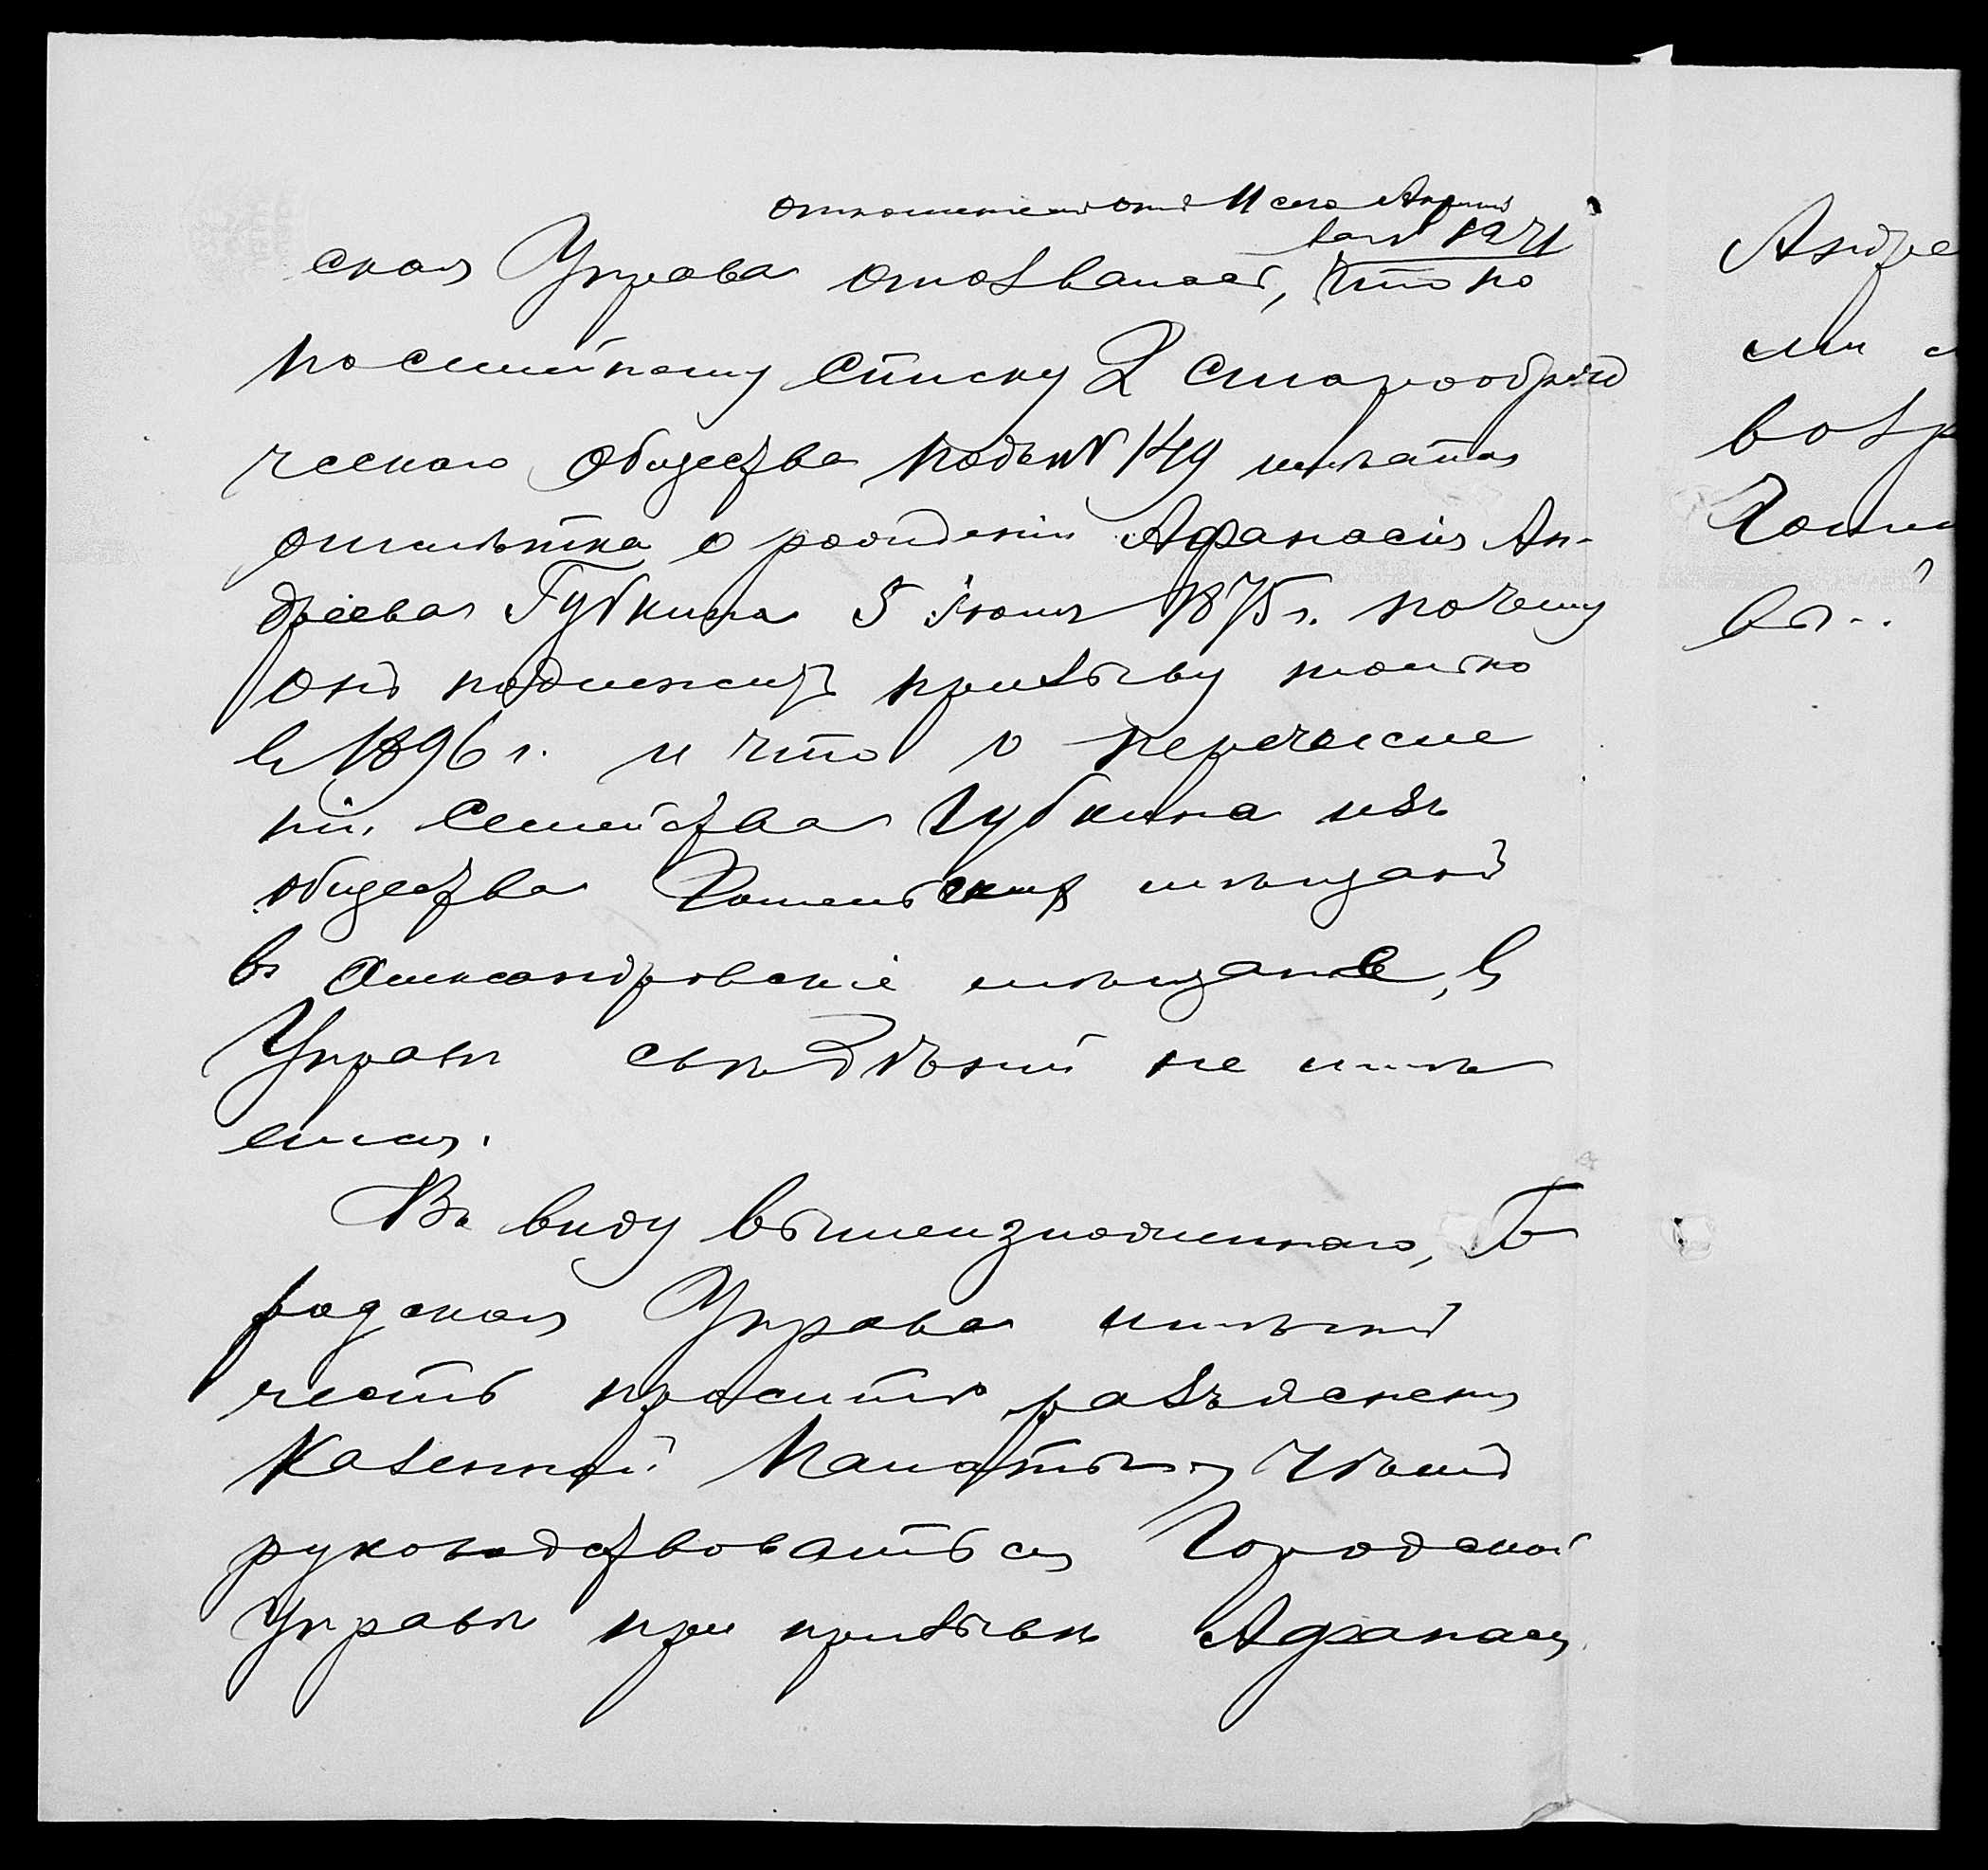 отношеніемъ отъ 11 сего Апрѣля
за № 1271
ская Управа отозвалась, что по
посемейному списку 2 старообряд
ческаго общества подъ № 149 имѣется
отмѣтка о рожденіи Афанасія Ан-
дреева Губкина 5 Іюля 1875 г. почему
онъ подлежитъ призыву только
въ 1896 г. и что о перечисле
ніи семейства Губкина изъ
общества Гомельскихъ мѣщанъ
въ Александровскіе мѣщане, въ
Управѣ свѣдѣній не имѣ
ется.
Въ виду вышеизложеннаго, Го
родская Управа имѣетъ
честь просить разъясненія
Казенной Палаты, чѣмъ
руководствоваться Городской
Управѣ при призывѣ Афанасія
Андре
ли
возр
Гомел
вы..